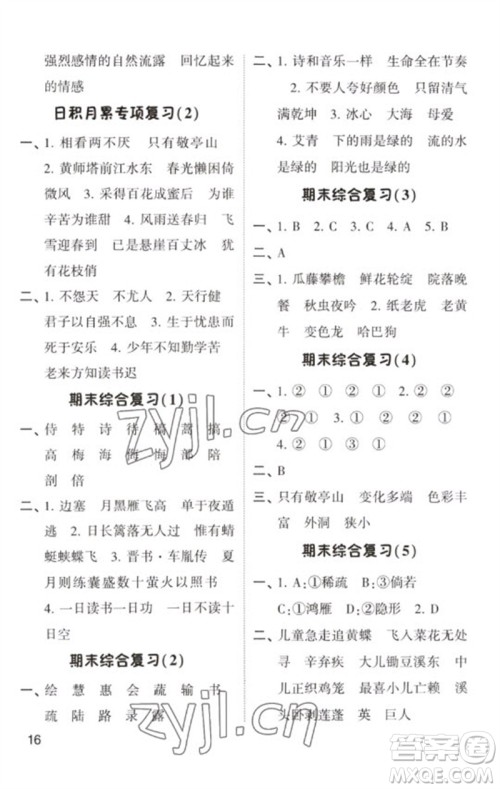 强烈感情的自然流露　回忆起来
的情感
日积月累专项复习(2)
一、1. 相看两不厌　只有敬亭山
2. 黄师塔前江水东　春光懒困倚
微风　3. 采得百花成蜜后　为谁
辛苦为谁甜　4. 风雨送春归　飞
雪迎春到　已是悬崖百丈冰　犹
有花枝俏
二、1. 不怨天　不尤人　2. 天行健
君子以自强不息　3. 生于忧患而
死于安乐　4. 少年不知勤学苦
老来方知读书迟
期末综合复习(1)
一、侍　特　诗　待　稿　蒿　搞
高　梅　海　悔　部　陪
剖　倍
二、1. 边塞　月黑雁飞高　单于夜遁
逃　2. 日长篱落无人过　惟有蜻
蜓蛱蝶飞　3. 晋书·车胤传　夏
月则练囊盛数十萤火以照书
4. 一日读书一日功　一日不读十
日空
期末综合复习(2)
一、绘　慧　惠　会　蔬　输　书
疏　陆　路　录　露
16
二、1. 诗和音乐一样　生命全在节奏
2. 不要人夸好颜色　只留清气
满乾坤　3. 冰心　大海　母爱
4. 艾青　下的雨是绿的　流的水
是绿的　阳光也是绿的
期末综合复习(3)
一、1. B　2. C　3. C　4. A　5. B
二、A
三、1. 瓜藤攀檐　鲜花轮绽　院落晚
餐　秋虫夜吟　2. 纸老虎　老黄
牛　变色龙　哈巴狗
期末综合复习(4)
一、1. ②　①　①　2. ②　①　②
3. ②　①　②　①　①　②
4. ②　①　③　①
二、B
三、只有敬亭山　变化多端　形式丰
富　外洞　狭小
期末综合复习(5)
一、1. A:①稀疏　B:①倘若
C:①鸿雁　D:②隐形　2. D
二、儿童急走追黄蝶　飞入菜花无处
寻　大儿锄豆溪东　中儿正织鸡
笼　最喜小儿亡赖　溪
头卧剥莲蓬　英　巨人
zyjl.cn
zyjl.cn
答案圈
MXQE.COM